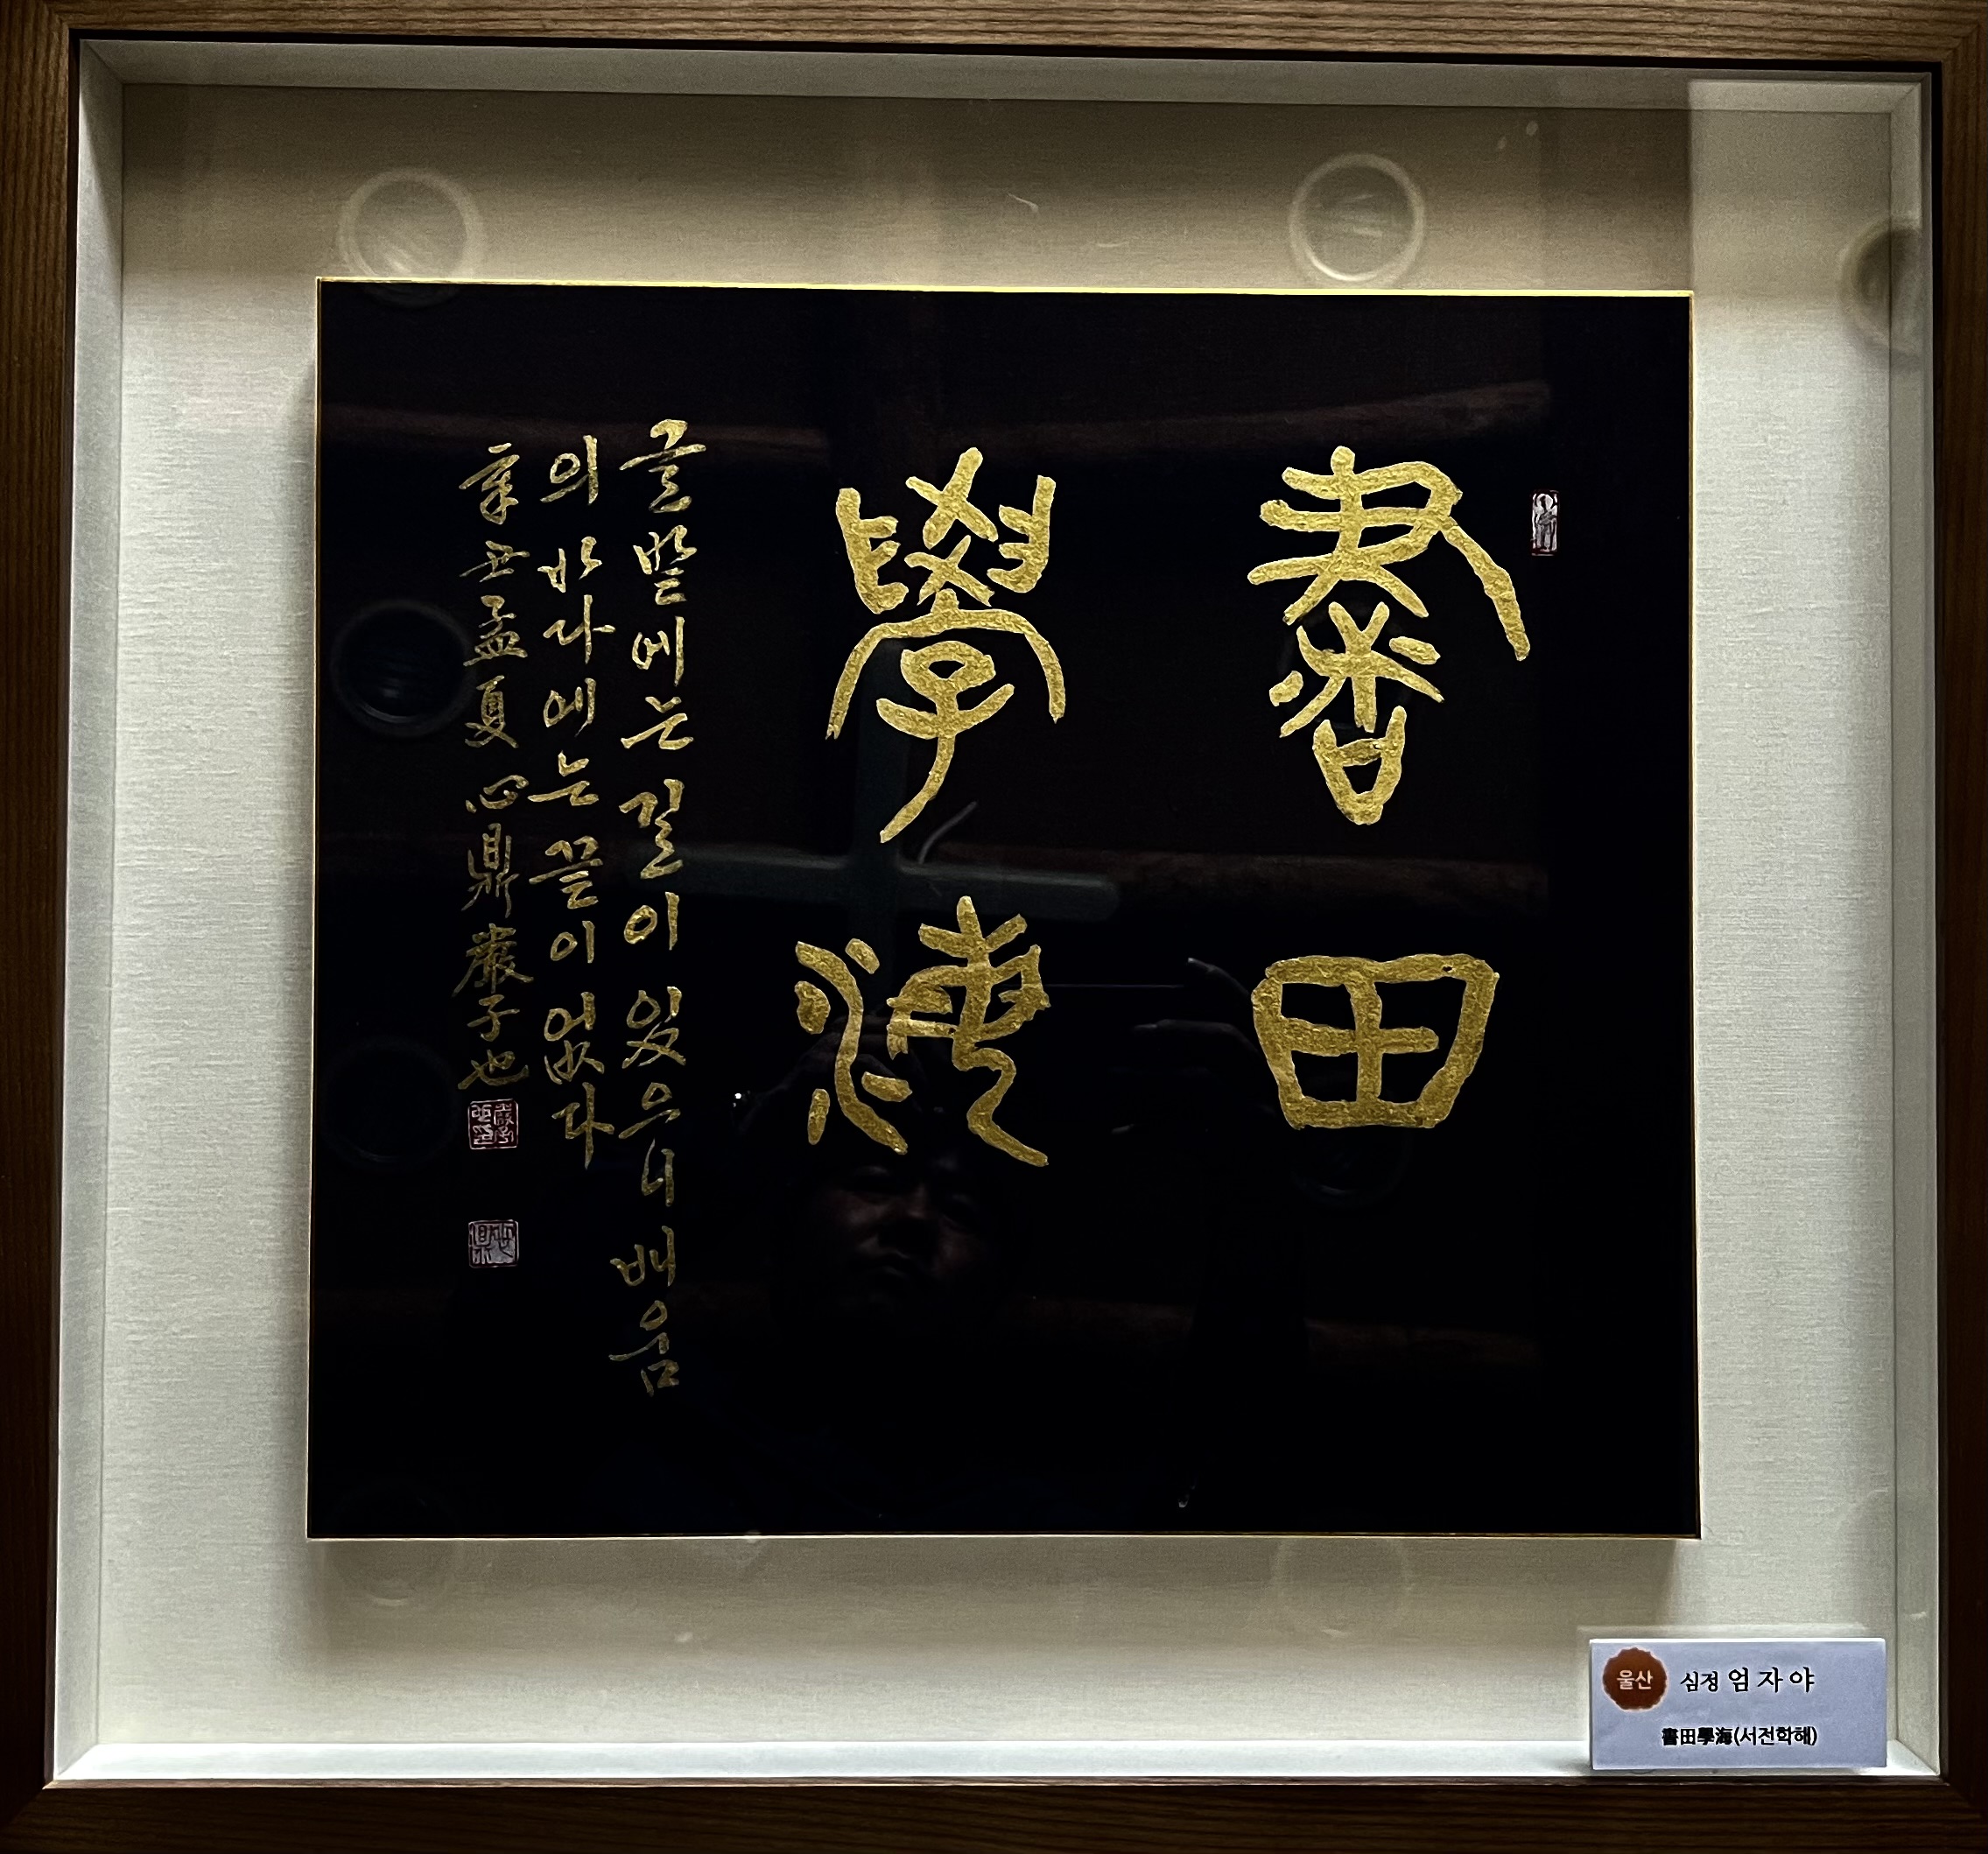 書田
學海
글밭에는 길이 있으니 배움
의 바다에는 끝이 없다
辛丑孟夏 心鼎 嚴子也
울산
심정 엄자야
書田學海(서전학해)